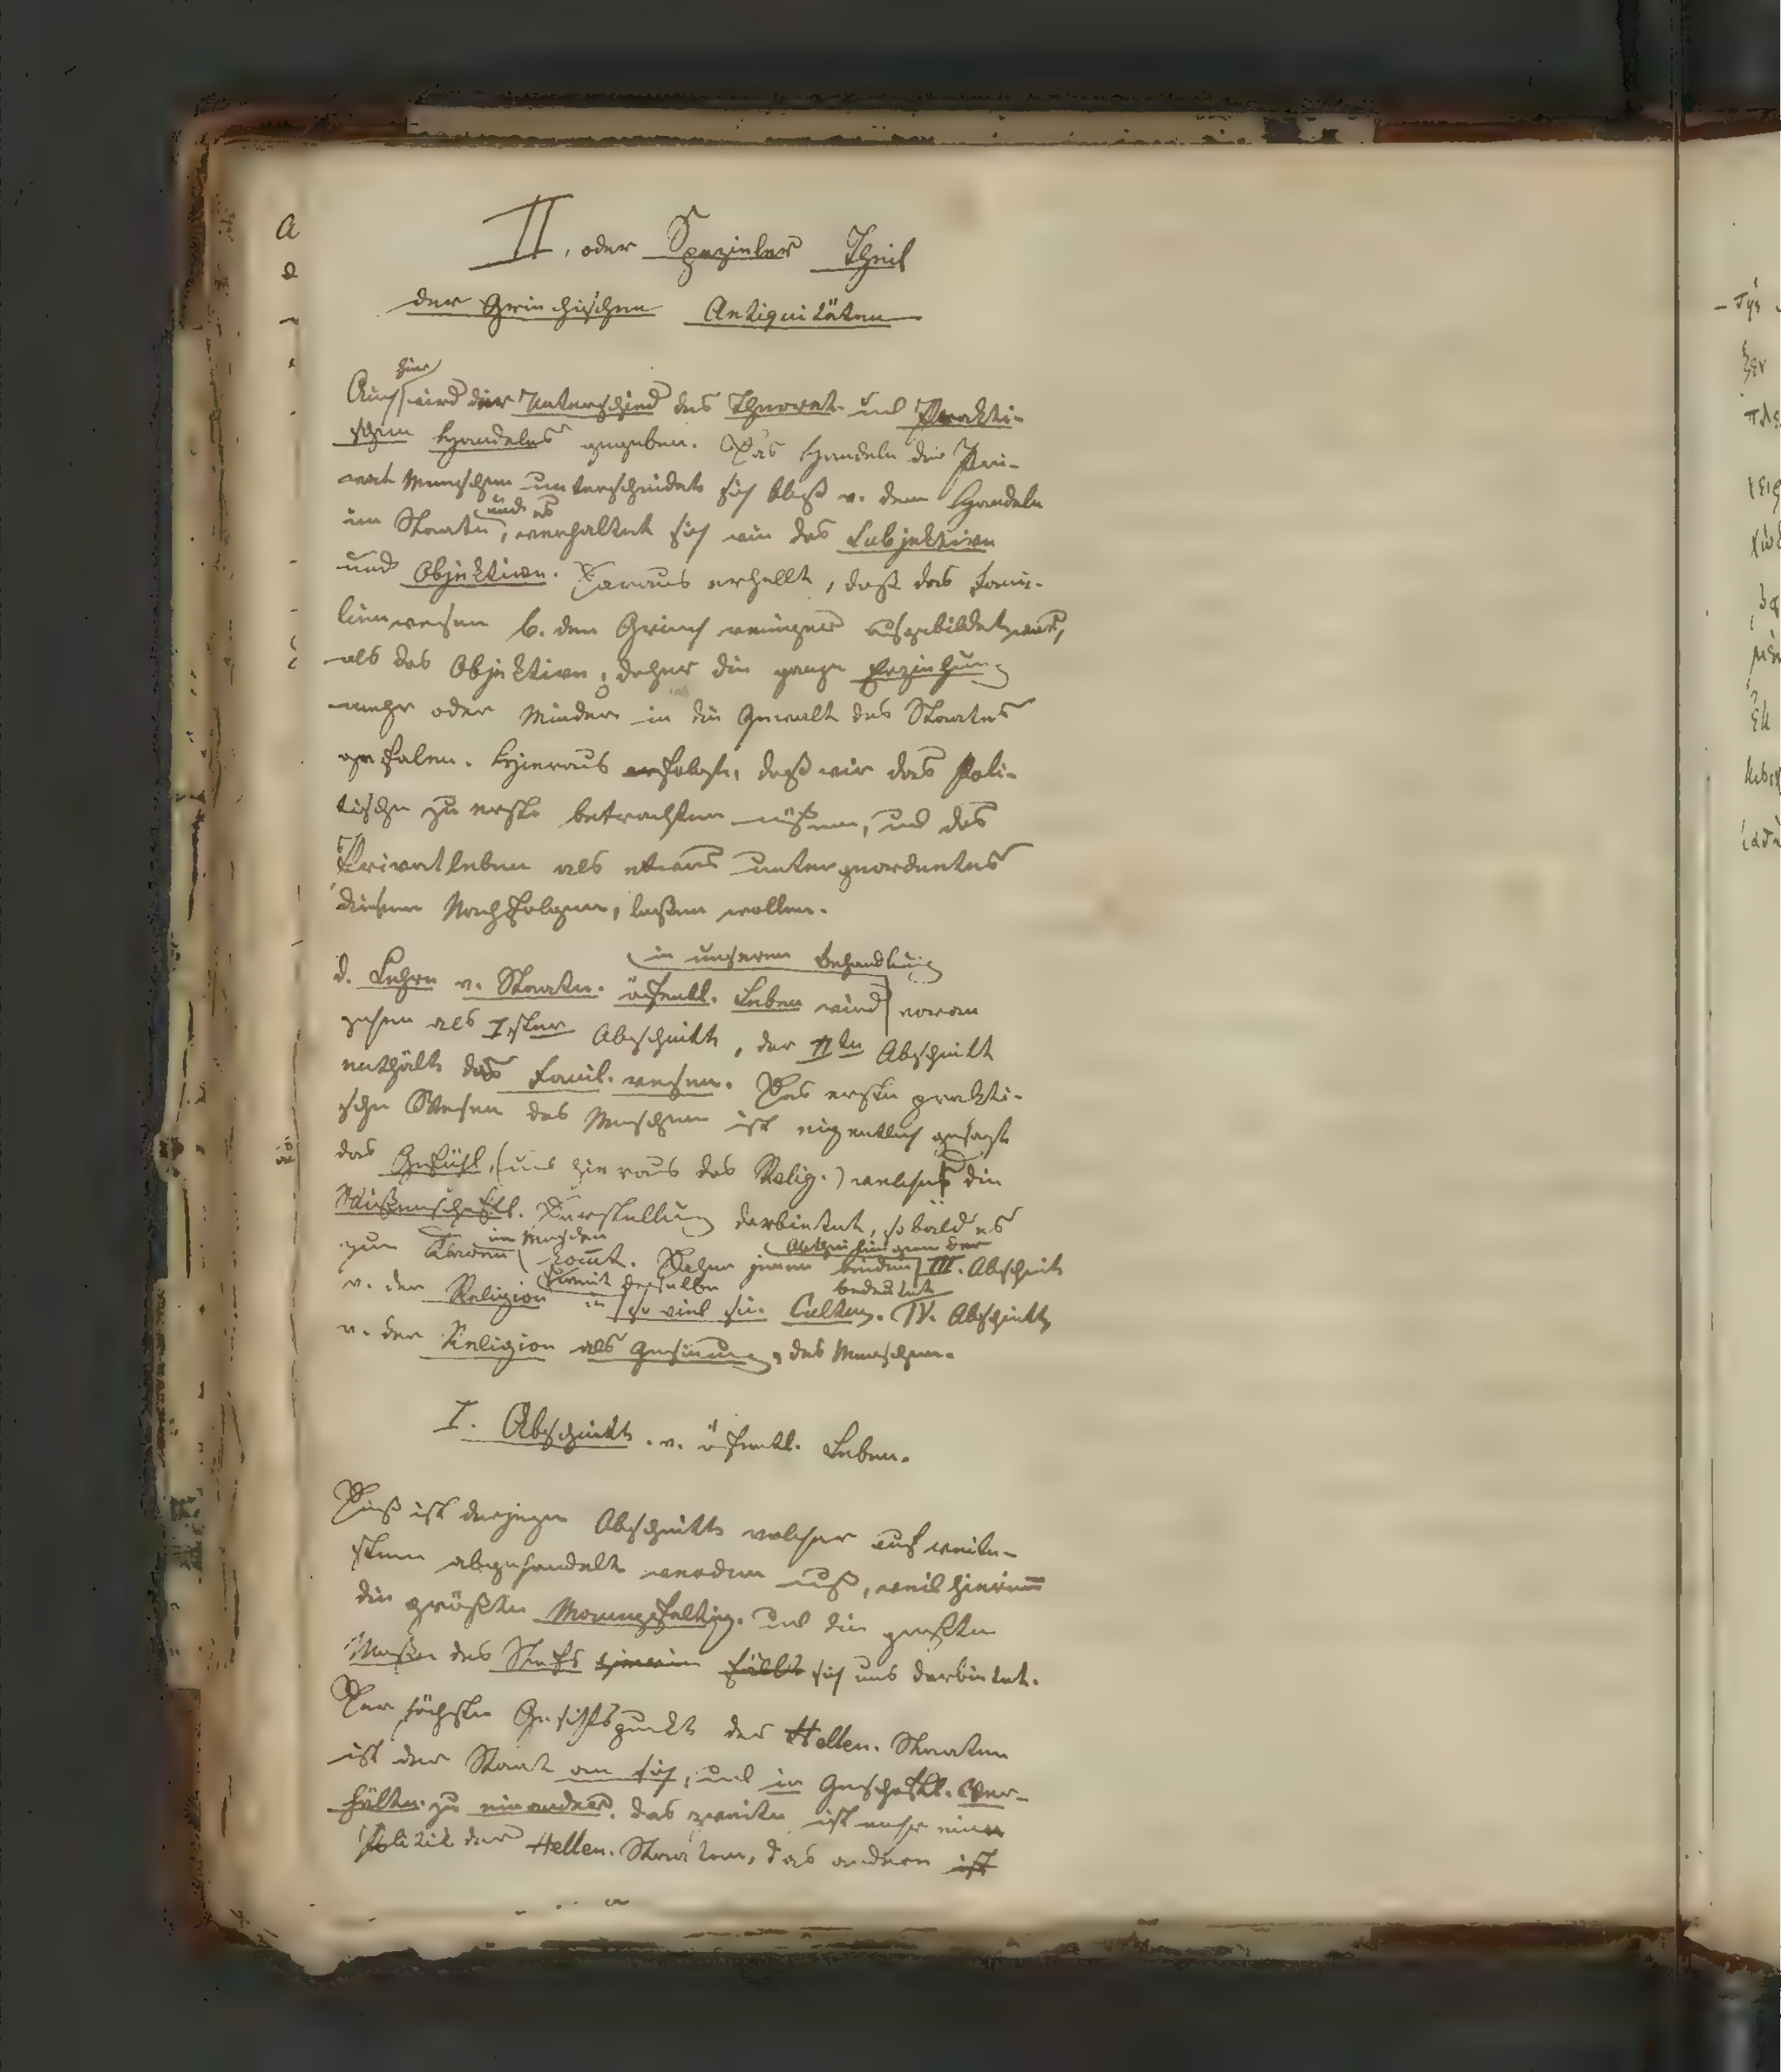 II. oder Spezieler Theil
der Griechischen Antiquitäten
hier
Auch wird der Unterschied des Theoret. und Prakti-
schen Handelns gegeben. Das Handeln der Pri-
vat Menschen unterscheidet sich bloß v. dem Handeln
und es
im Staate, verhaltet sich wie das Subjektive
und Objektive. Daraus erhellt, daß das Fami-
lienwesen b. den Griech weniger ausgebildet war,
als das Objektive, daher die ganze Erziehung
mehr oder Minder in die Gewalt des Staates
gefalen. Hieraus erfolgt, daß wir das Poli-
tische zu erst betrachten müßen, und das
Privatleben als etwas untergeordnetes
diesem Nachfolgen, laßen wollen.
in unserem Behandlung
d. Lehre v. Staate. öfentl. Leben wird voran
gehen als Ister Abschnitt, der IIte Abschnitt
enthält das Famil. wesen. Das erste prakti-
sche Wesen des Menschen ist eigentlich gesagt
das Gefühl, (und hieraus das Relig.) welches die
Wißenschaftl. Darstellung darbietet, sobald es
im Menschen
zum komt. Daher jenen beiden III. Abschnitt
Abtheilungen der
v. der Religion in so viel sie Cultus. IV. Abschnitt
bedeutet
v. der Religion als Gesinnung des Menschen.
I. Abschnitt. v. öfentl. Leben.
Dieß ist derjenige Abschnitt welcher auf weite-
sten abgehandelt werden muß, weil hierinn
die größte Mannigfaltig. und die größte
Maße des Stofs sich uns darbietet.
Der höchste Gesichtspunkt der Hellen. Staaten
ist der Staat an sich, und in Geschäftl. Ver-
hältn. zu einander. das zweite ist mehr eine
Politik der Hellen. Staaten, das andere ist